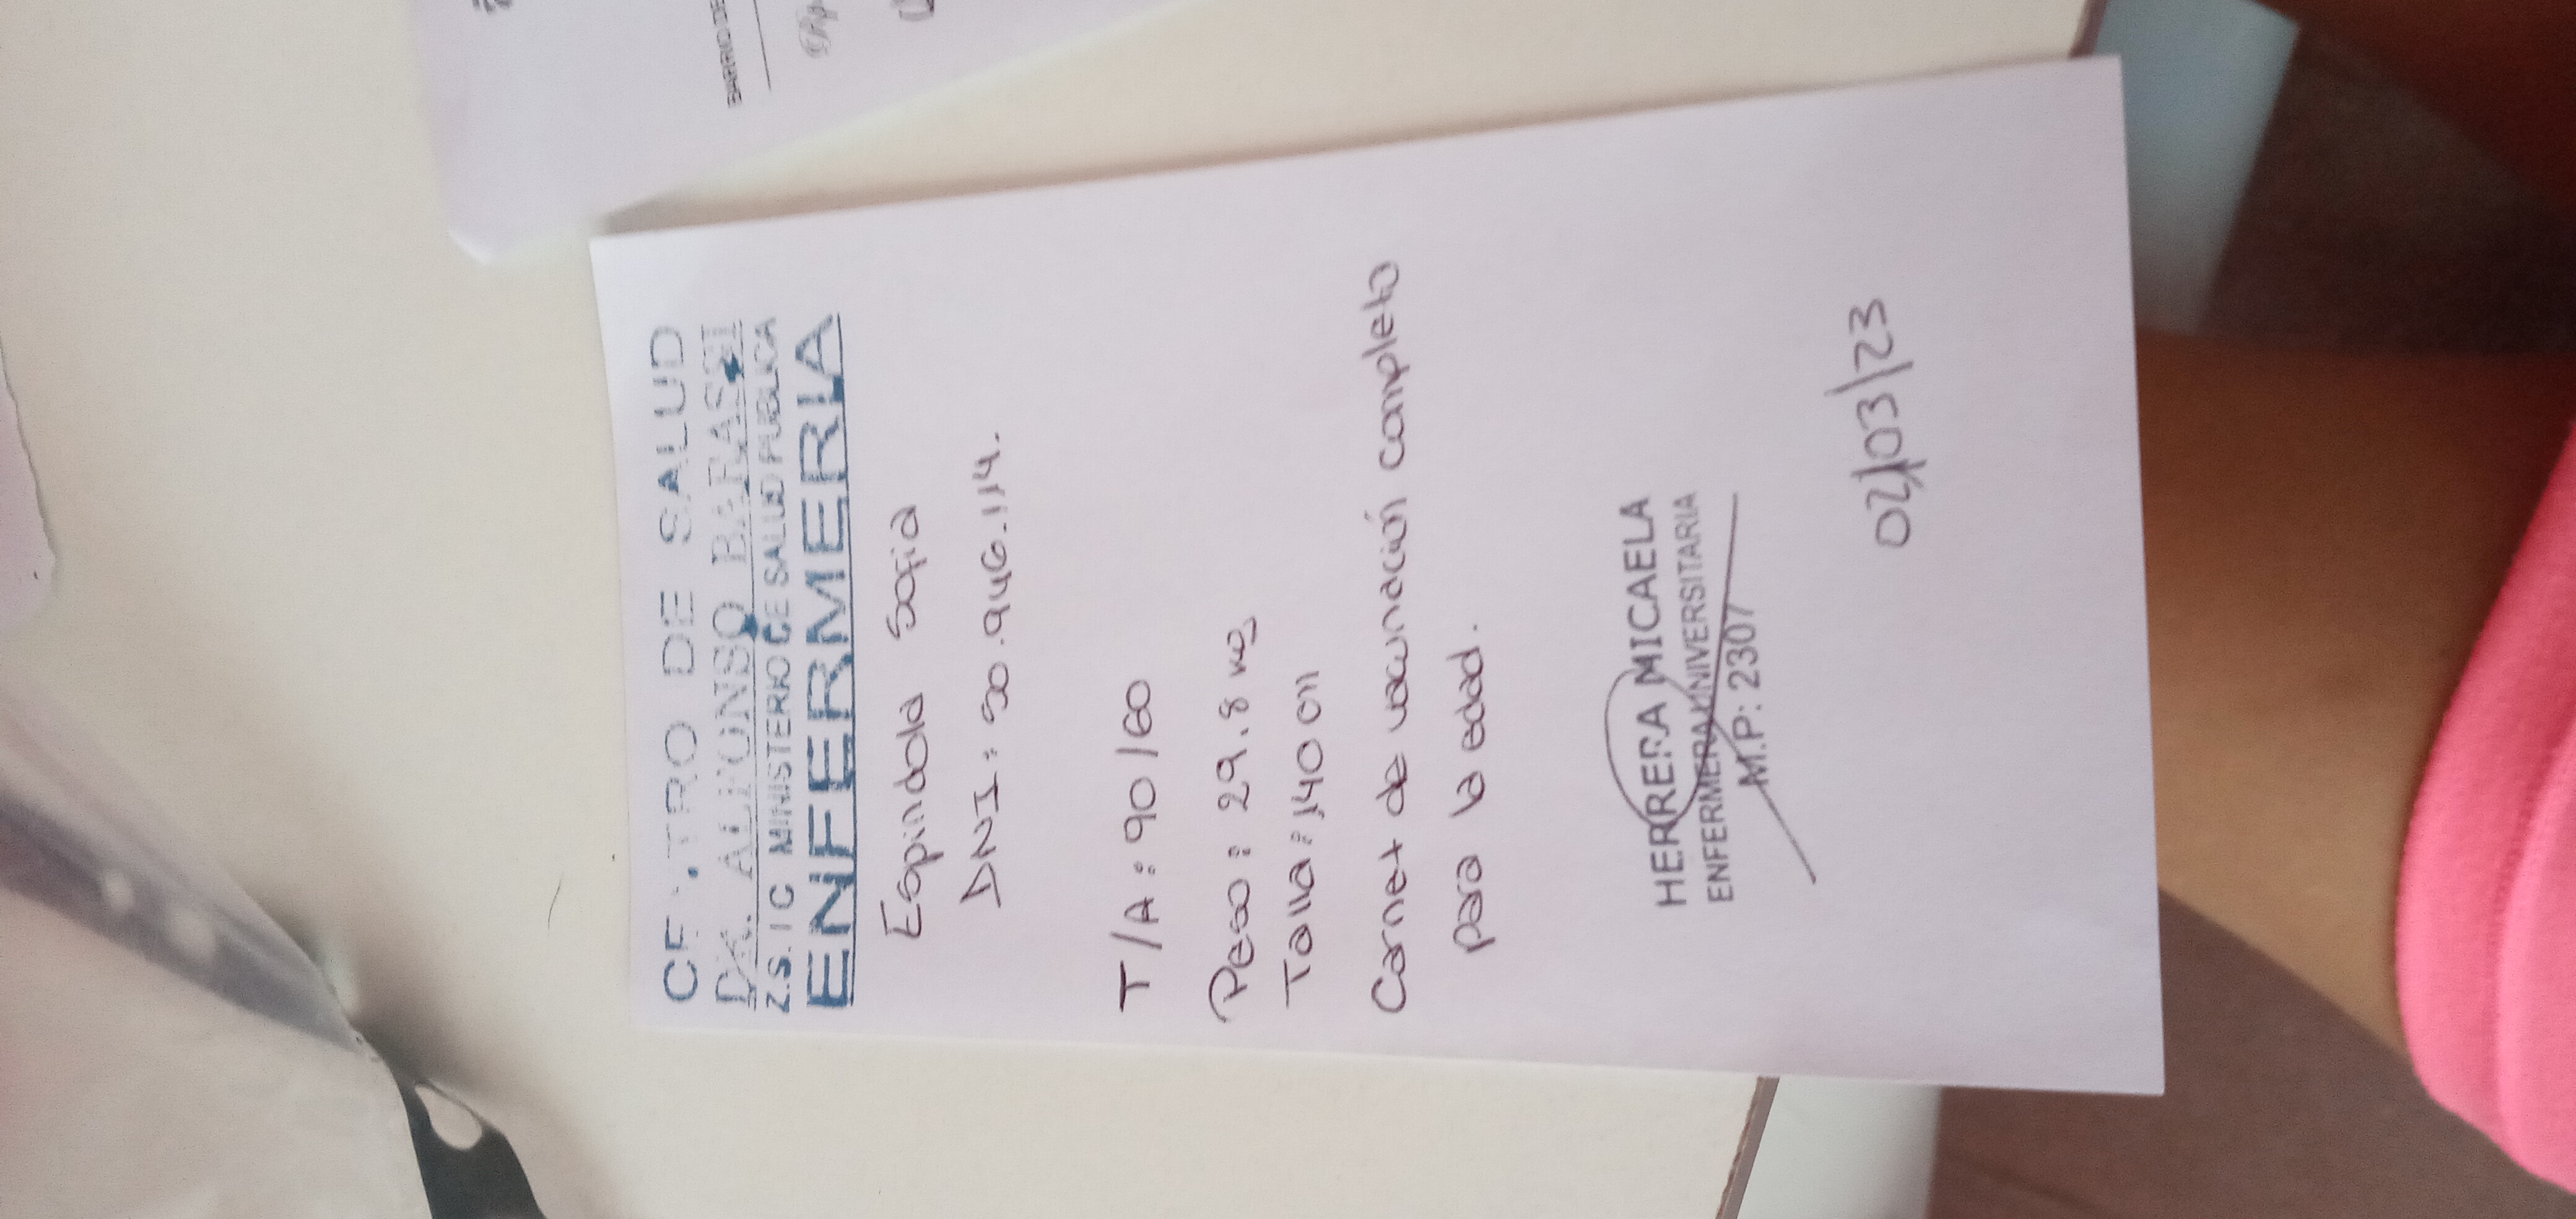 CENTRO DE SALUD
DR. ALFONSO BARASSI
MINISTERIO DE SALUD PUBLICA
ENFERMERIA
Espindola Sofia
DNI: 50.946.114.
T/A: 90/60
Peso: 29.8 kg
Talla: 140 cm
Carnet de vacunación completo
para la edad.
HERRERA MICAELA
ENFERMERA UNIVERSITARIA
M.P: 2307
02/03/23
BARRIO DE